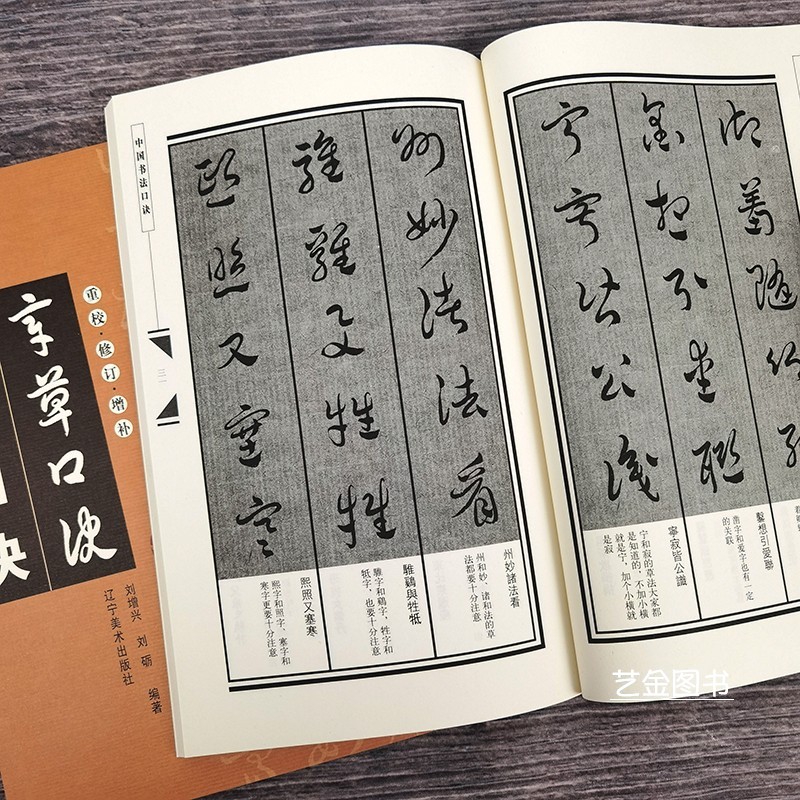 鑿想引愛聯
寧寂皆公識
鑿想引愛聯
凿字和爱字也有一定
的关联
寧寂皆公識
宁和寂的草法大家都
是知道的,不加小横
就是宁,加个小横就
是寂
州妙諸法看
熙照又塞寒
州妙諸法看
州和妙、诸和法的草
法都要十分注意
字和鷄字,牲字和
牴字,也要十分注意
熙照又塞寒
熙字和照字、塞字和
寒字更要十分注意
中国书法口诀
重校·修订·增补
草口诀
诀
刘增兴 刘砺 编著
辽宁美术出版社
艺金图书